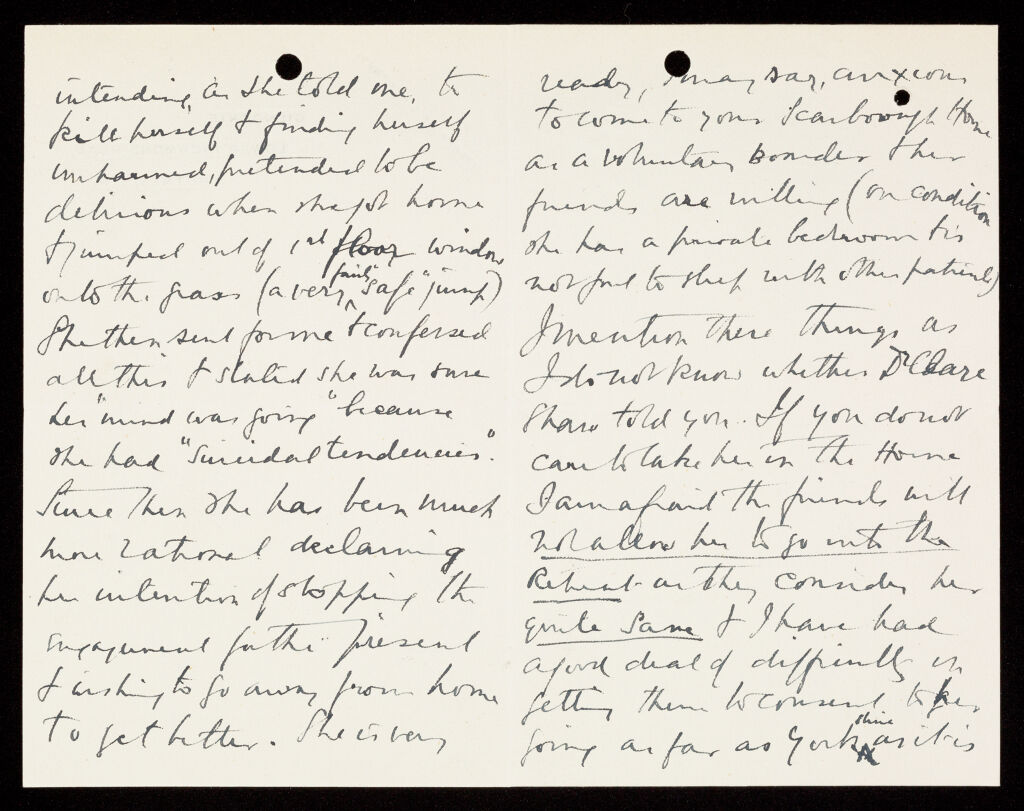 intending, as she told me, to
kill herself & finding herself
unharmed, pretended to be
delirious when she got home
& jumped out of 1st floor window
onto the grass (a very fairly "safe" jump)
She then sent for me & confessed
all this & stated she was sure
her "mind was going" because
she had "suicidal tendencies".
Since then she has been much
more rational declaring
her intention of stopping the
engagement for the present
& wishing to go away from home
to get better. She is very
ready, I may say, anxious
to come to your Scarborough Home
as a voluntary boarder & her
friends are willing (on condition
she has a private bedroom & is
not put to sleep with other patients)
I mention these things as
I do not know whether Dr Clare
Shaw told you. If you do not
care to take her in the Home
I am afraid the friends will
not allow her to go into the
Retreat as they consider her
quite sane & I have had
a good deal of difficulty in
getting them to consent to her
going as far as Yorkshire as it is